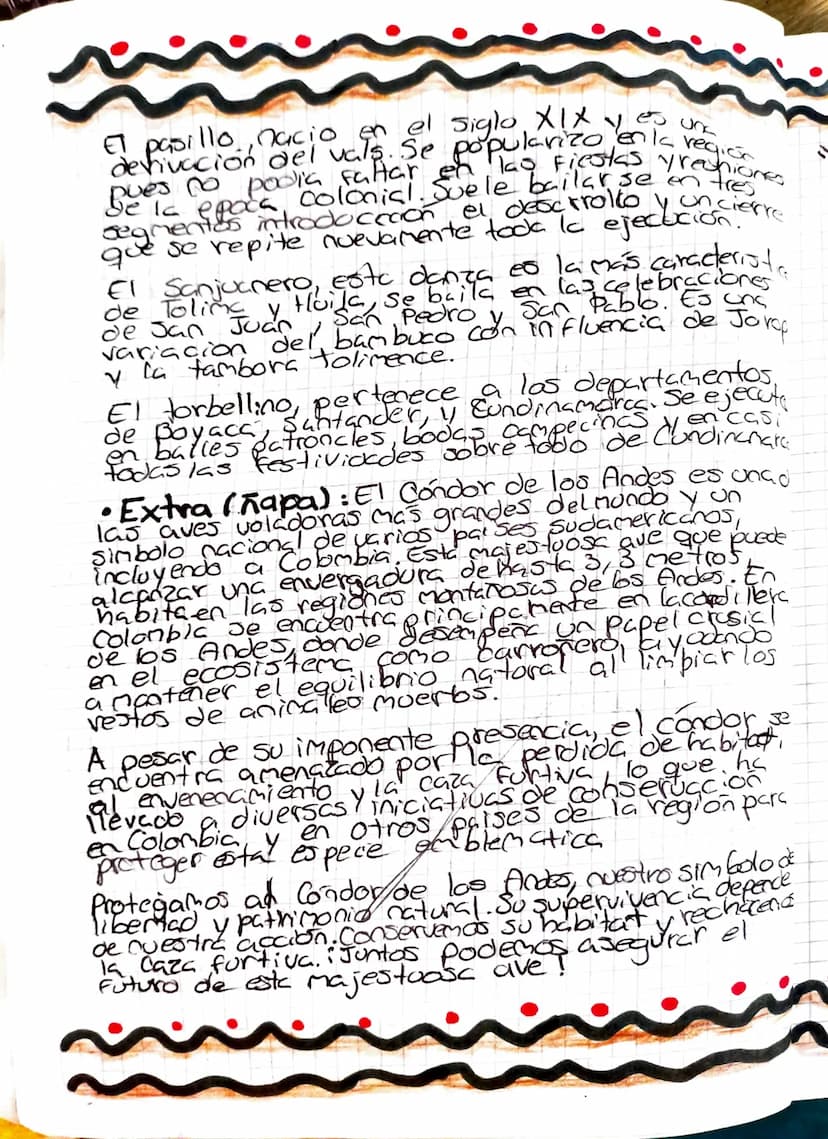 El pasillo, nacio en el siglo XIX y es una
derivación del vals. Se popularizo en la región
pues no podia faltar en las fiestas y reuniones
de la epoca colonial. Suele bailarse en tres
segmentos introdoccción el descrrollo y un cierre
que se repite nuevamente toda la ejecución.
El Sanjuanero, esta danza es la más característ
de Tolima y Huila, se baila en las celebraciones
de San Juan, San Pedro y San Pablo. Es una
variacion del bambuco con influencia de Jorop
y la tambora tolimence.
El torbellino, pertenece a los departamentos
de Boyacá, Santander, y Cundinamarca. Se ejecuta
en bailes patronales, bodas campecinas y en casi
todas las festividades sobre todo de Cundinamarc
• Extra (Ñapa): El Cóndor de los Andes es una d
las aves voladoras mas grandes del mundo y un
simbolo nacional de varios países sudamericanos,
incluyendo a Colombia. Esta majestuosa ave que puede
alcanzar una envergadura de hasta 3,3 metros,
habita en las regiones montañosas de los Andes. En
Colombia se encuentra principamente en la cordillera
de los Andes, donde desempeña un papel crusial
en el ecosistema como carroñero, ayudando
a mantener el equilibrio natural al limpiar los
restos de animales muertos.
A pesar de su imponente presencia, el cóndor se
encuentra amenazado por la perdida de habitat,
el envenenamiento y la caza furtiva, lo que ha
llevado a diversas iniciativas de conservación
en Colombia y en otros países de la región para
proteger esta espece emblematica
Protegamos al Condor de los Andes, nuestro simbolo de
libertad y patrimonio natural. Su supervivencia depende
de nuestra acción. Conservemos su habitat y rechacena
la caza furtiva. ¡Juntos podemos asegurar el
futuro de esta majestuosa ave!